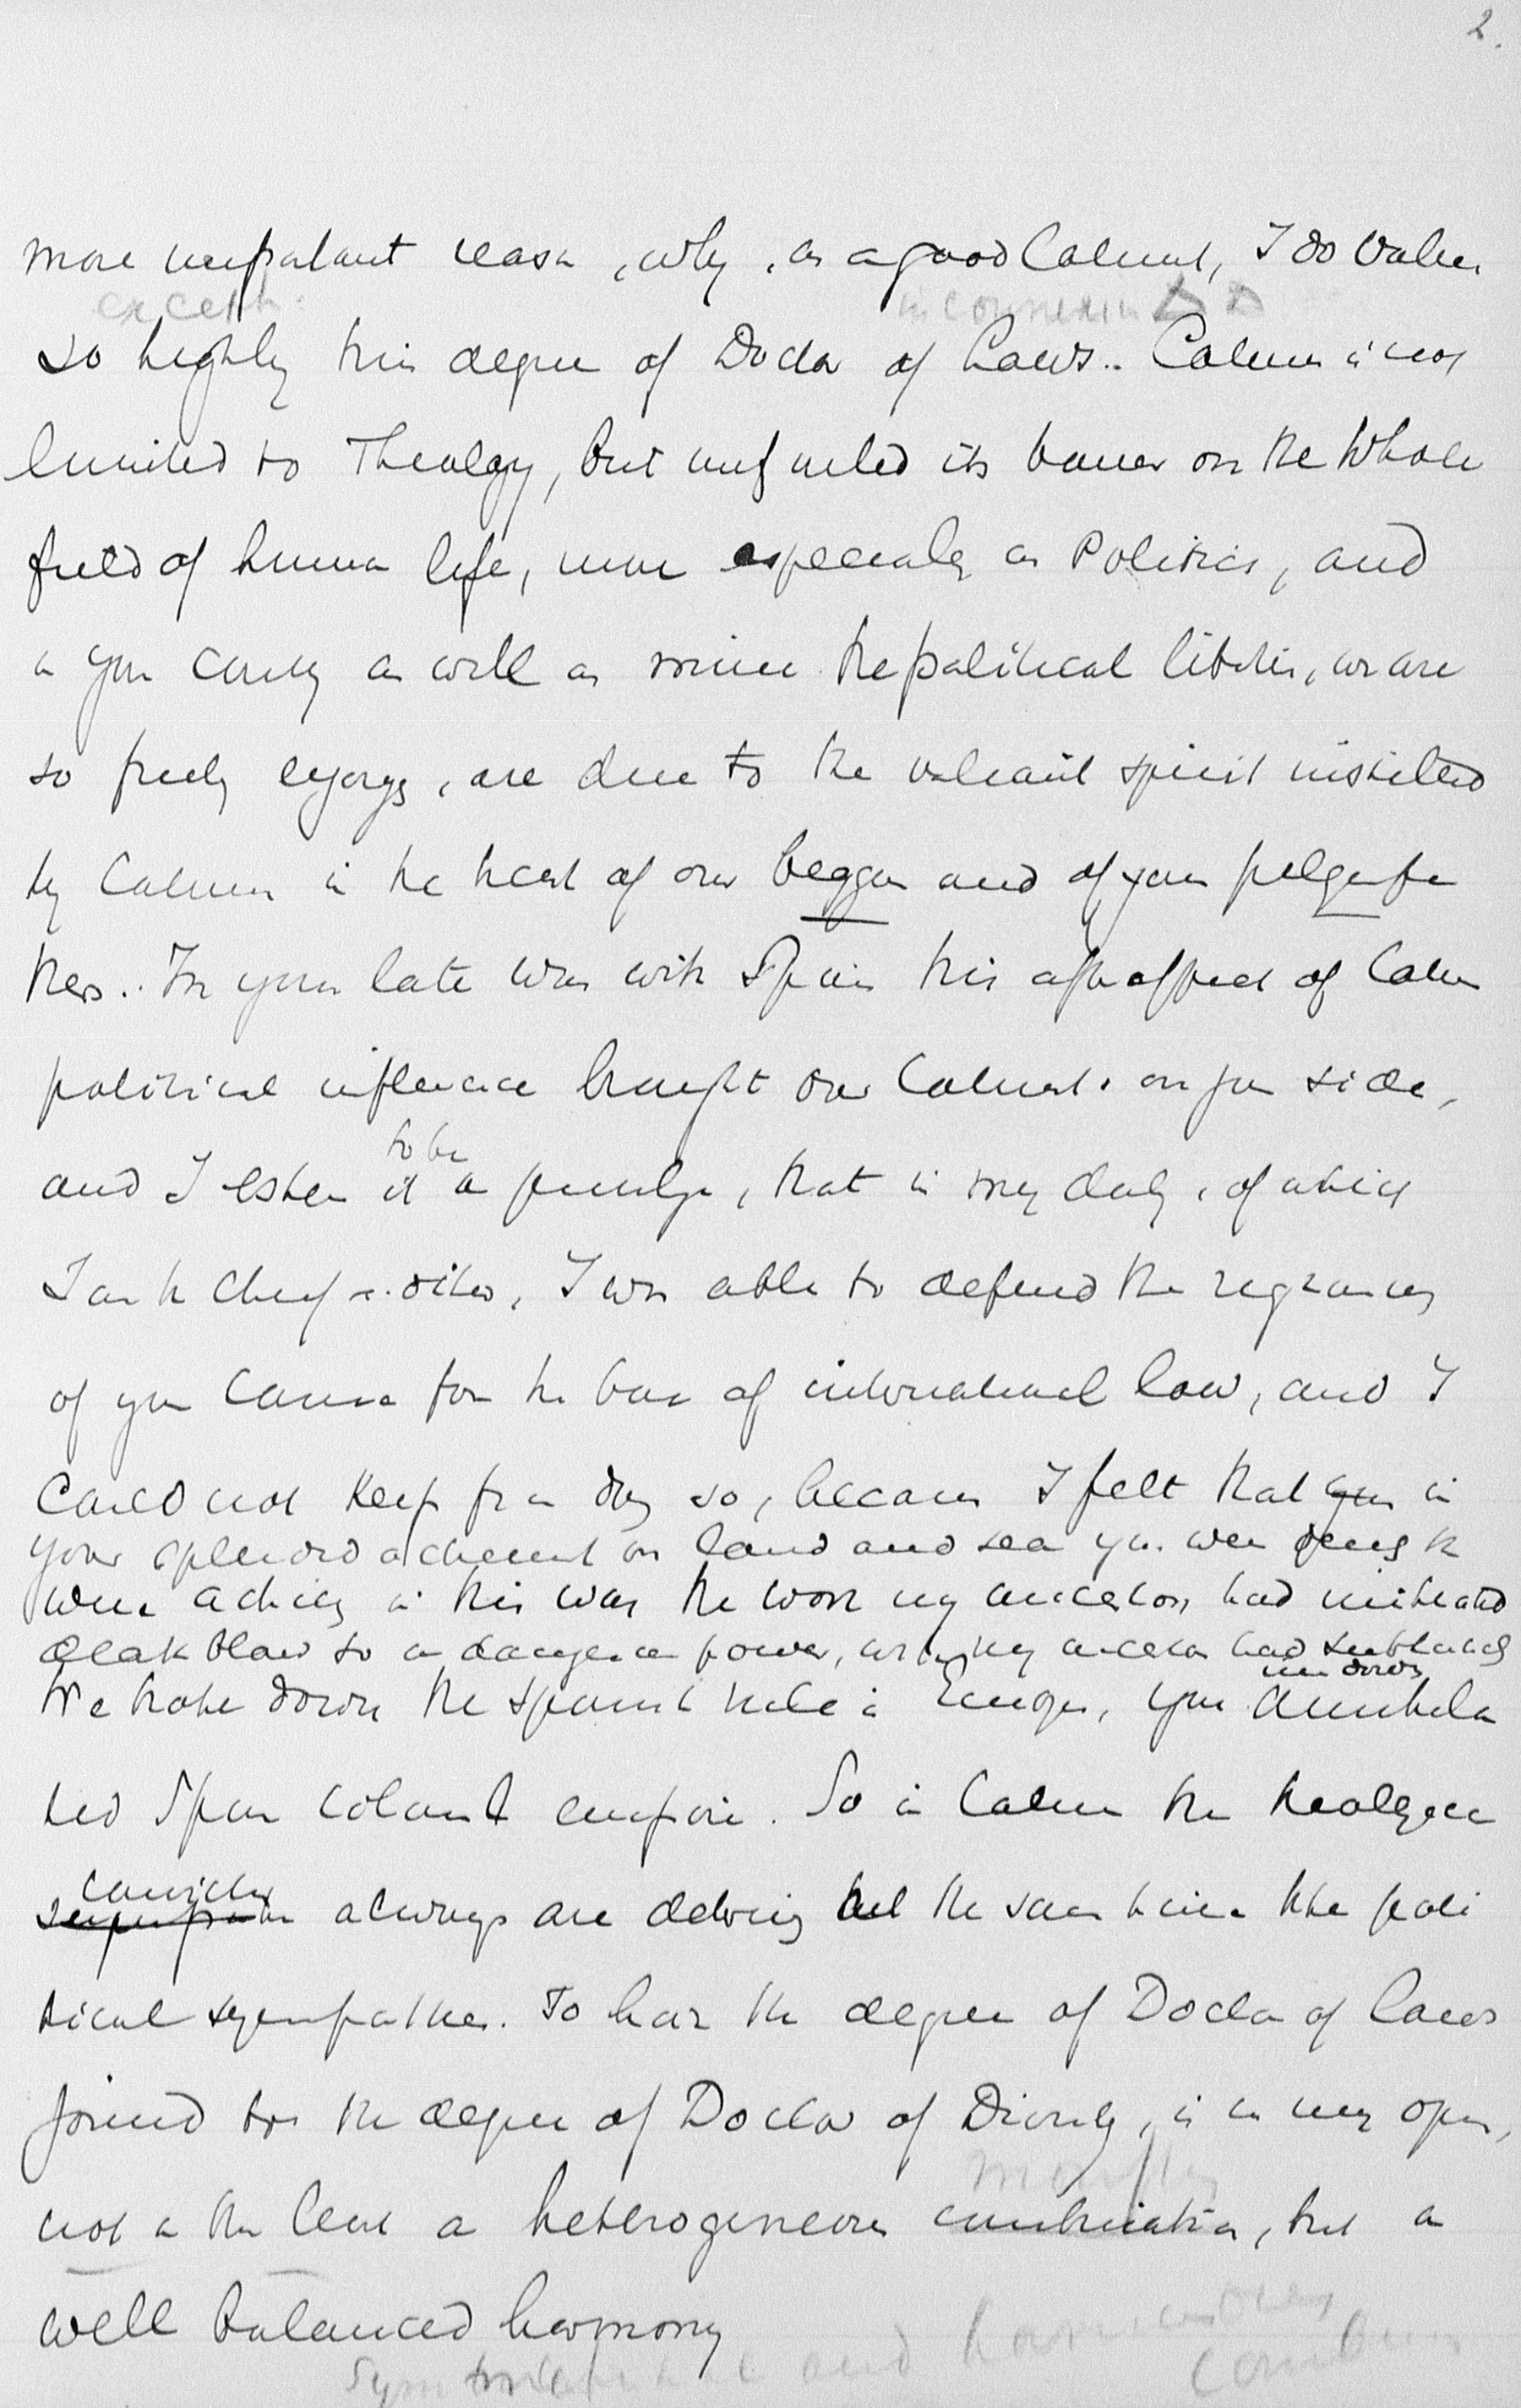 2.
more important reason, why, as a good Calvinist, I do value
so highly this degree of Doctor of Laws.. Calvinism is not
limited to Theology, but unfurled its banner on the whole
field of human life, more especially on Politics, and
in your country as well as mine the political liberties, we are
so freely enjoying, are due to the valiant spirit instilled
by Calvinism in the heart of our beggars and of your pilgrimfa
thers.. In your late war with Spain this after effect of Calv
political influence brought our Calvinists on your side,
to be
and I esteem it a privilege, that in my daily, of which
I am the chief editor, I was able to defend the
of your cause from the bar of international law, and I
could not keep from doing so, because I felt that in
your splendid achievement on land and sea you were
were in this war the work my ancestors had initiated
death blow to a dangerous power, my ancestors had
We broke down the Spanish rule in Europe, you
un doing
ted Spain colonial empire. So in Calvinism the theological
convictions
always are the same time the poli
tical sympathies. To hear the degree of Doctor of Laws
joined to the degree of Doctor of Divinity, is in my opinion,
not in the least a heterogeneous combination, but a
well balanced harmony
and